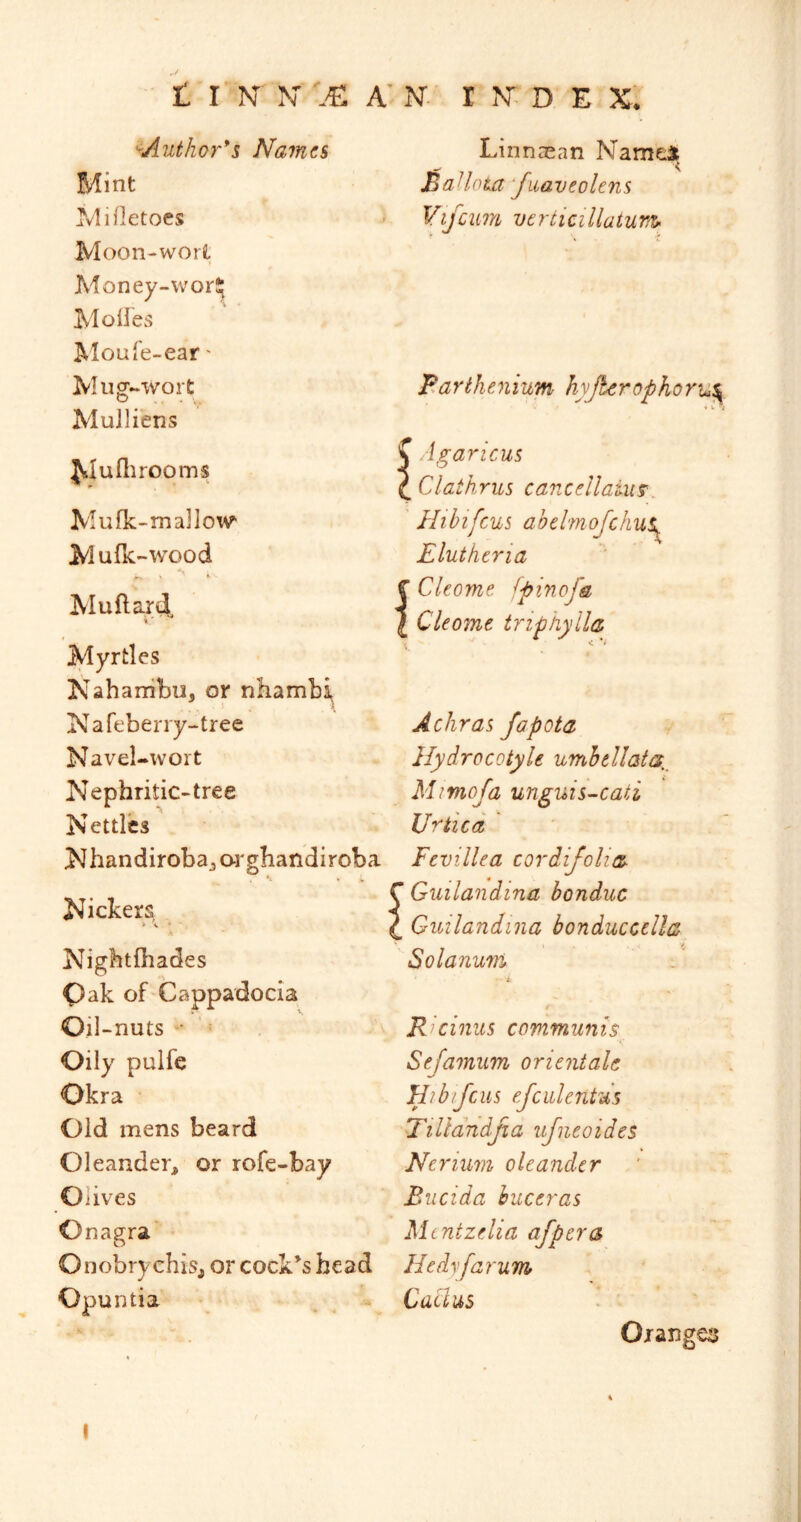 LINNÆAN INDEX.
Author's Names Linnæan Names
Mint Ballota ſuaveolens
Miſletoes Viſcum verticillatum
Moon-wort
Money-wort
Moſſes
Mouſe-ear
Mug-wort Parthenium hyſterophorus
Mulliens
Muſhrooms { Agaricus
Clathrus cancellatus
Muſk-mallow Hibiſcus abelmoſchus
Muſk-wood Elutheria
Muſtard { Cleome ſpinoſa
Cleome triphylla
Myrtles
Nahambu, or nhambi
Naſeberry-tree Achras ſapota
Navel-wort Hydrocotyle umbellata
Nephritic-tree Mimoſa unguis-cati
Nettles Urtica
Nhandiroba, or ghandiroba Fevillea cordifolia
Nickers { Guilandina bonduc
Guilandina bonduccella
Nightſhades Solanum
Oak of Cappadocia
Oil-nuts Ricinus communis
Oily pulſe Seſamum orientale
Okra Hibiſcus eſculentus
Old mens beard Tillandſia uſneoides
Oleander, or roſe-bay Nerium oleander
Olives Bucida buceras
Onagra Mentzelia aſpera
Onobrychis, or cock's head Hedyſarum
Opuntia Cactus
Oranges